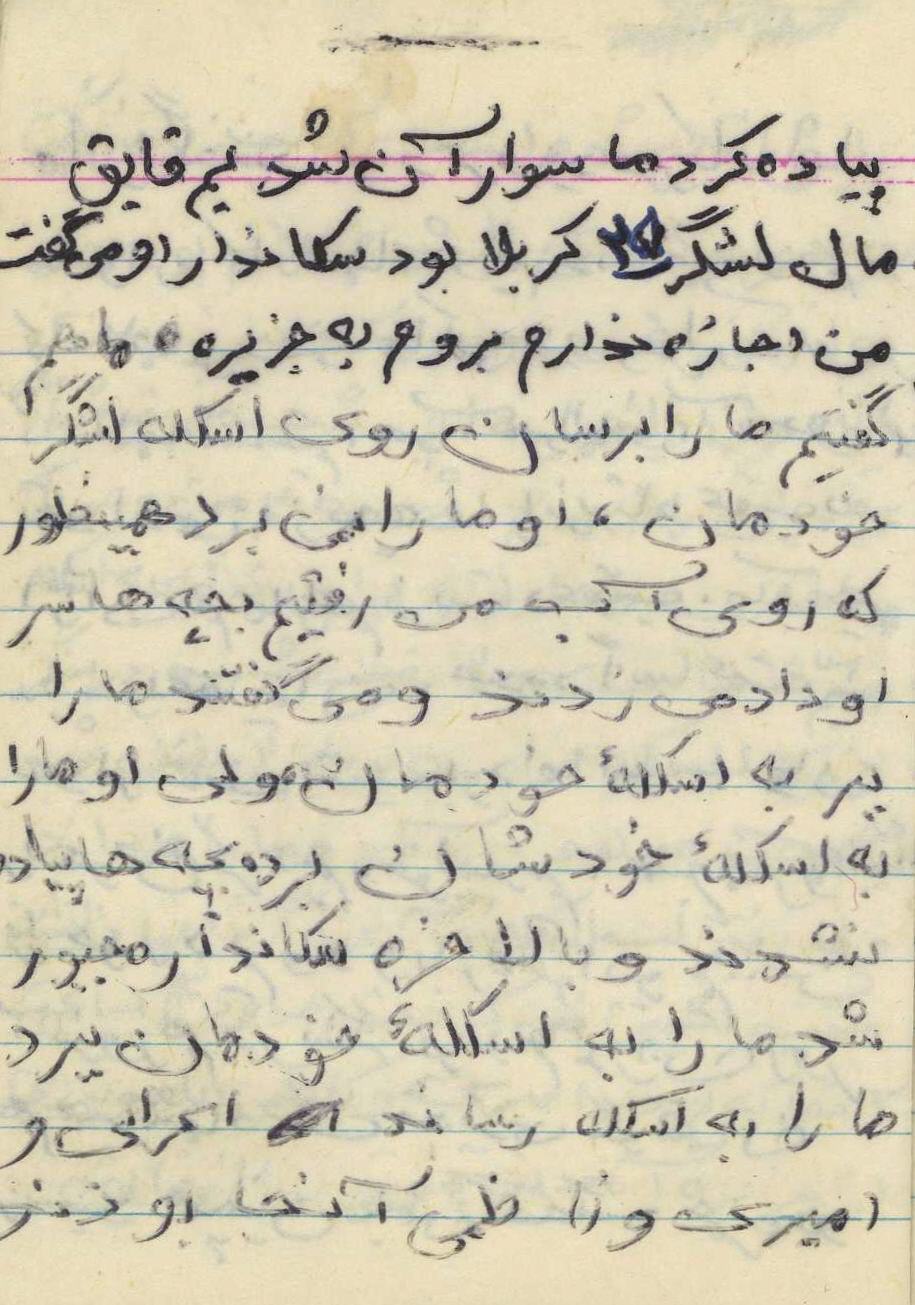 پیاده کرد ما سوار آن شدیم قایق
مال لشگر ۲۵ کربلا بود سکاندار او می گفت
من اجازه ندارم بروم به جزیره ما هم
گفتیم ما را برسان روی اسکله لشگر
خودمان، او ما را می برد همینطور
که روی آب می رفتیم بچه ها سر
او داد می زدند و می گفتند ما را
ببر به اسکلهٔ خودمان ولی او ما را
به اسکلهٔ خودشان برد بچه ها پیاده
نشدند و بالاخره سکاندار مجبور
شد ما را به اسکلهٔ خودمان ببرد
ما را به اسکله رساند اعرابی و
امیری و ناظمی آنجا بودند